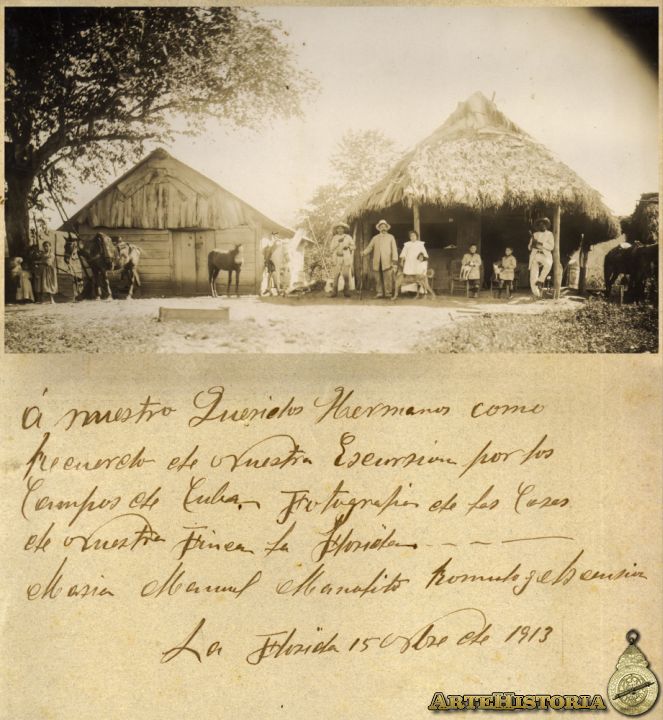 á nuestro Queridos Hermanos como
Recuerdo de Nuestra Escursion por los
Campos de Cuba. Fotografia de las Casas
de Nuestra Finca La Florida - - - —
Maria Manuel Manolito Romulo y Ascension
La Florida 15 Obre de 1913
ARTEHISTORIA